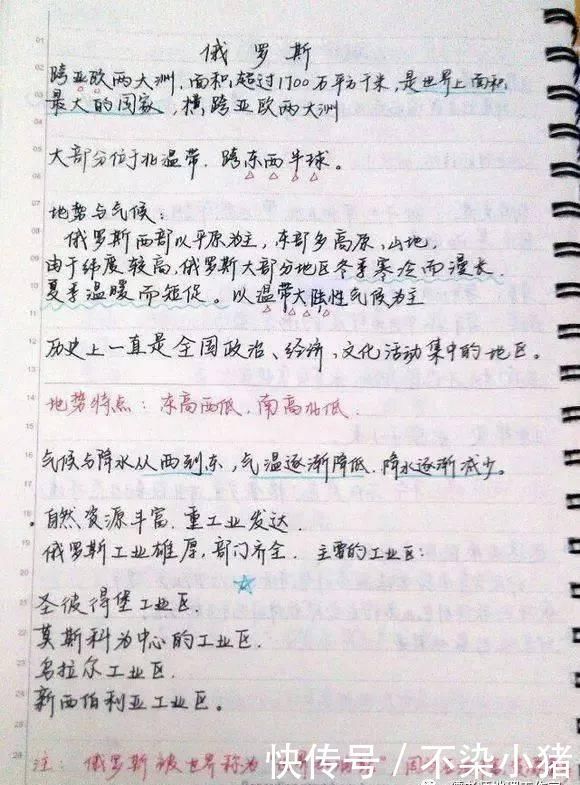 俄罗斯
跨亚欧两大洲,面积超过1700万平方千米,是世界上面积
最大的国家,横跨亚欧两大洲
大部分位于北温带.跨东西半球。
地势与气候:
俄罗斯西部以平原为主,东部多高原,山地
由于纬度较高,俄罗斯大部分地区冬季寒冷而漫长.
夏季温暖而短促。以温带大陆性气候为主
历史上一直是全国政治、经济,文化活动集中的地区。
地势特点:东高西低.南高北低.
气候与降水从西到东,气温逐渐降低.降水逐渐减少。
自然资源丰富.重工业发达.
俄罗斯工业雄厚,部门齐全. 主要的工业区:
圣彼得堡工业区
莫斯科为中心的工业区.
乌拉尔工业区.
新西伯利亚工业区。
注:俄罗斯被世界称为
快传号/不染小猪